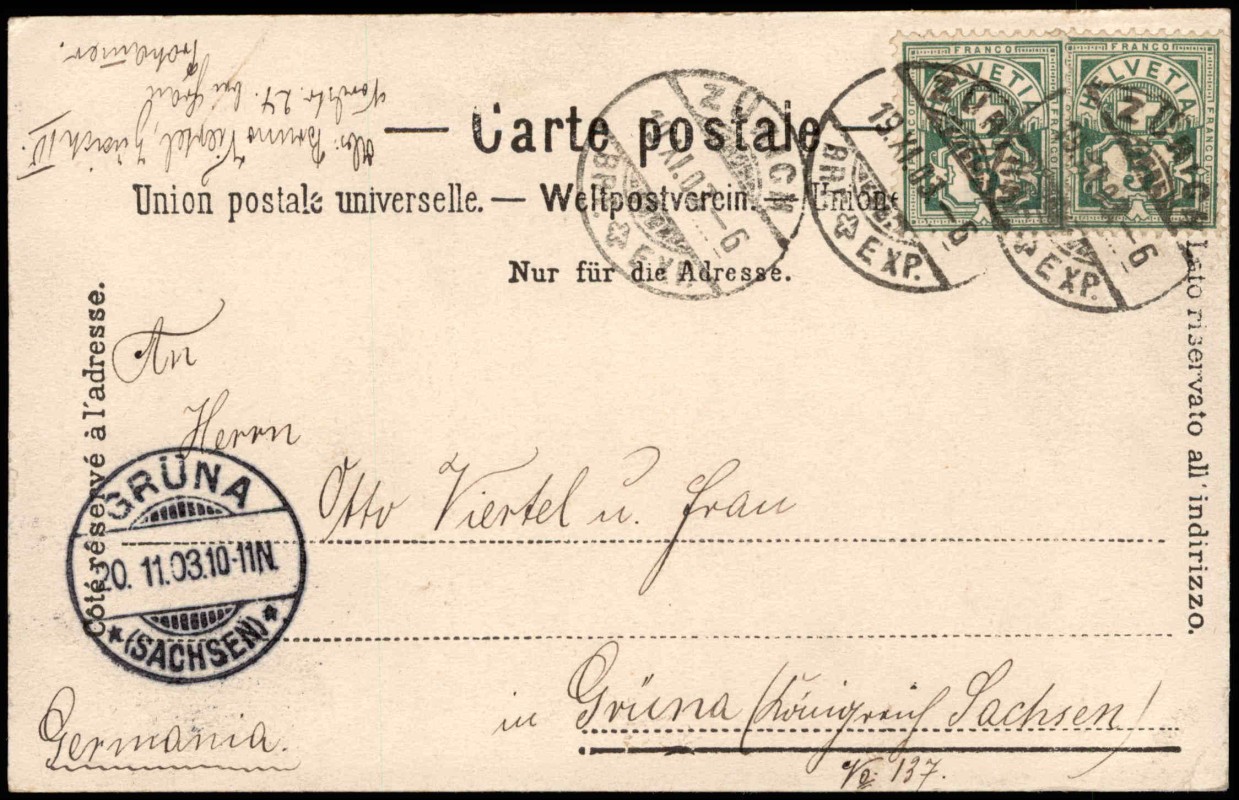 Abs: Bruno Viertel, Zürich IV.
24. bei Frau
Carte postale
Union postale universelle. — Weltpostverein. — Unione
Nur für die Adresse.
Côté réservé à l'adresse.
Lato riservato all'indirizzo.
FRANCO
HELVETIA
FRANCO
HELVETIA
ZÜRICH
19.XI.03.-6
BRF. EXP.
ZÜRICH
19.XI.03.-6
BRF. EXP.
ZÜRICH
-6
EXP.
An
Herrn
Otto Viertel u. Frau
GRÜNA
20. 11.03.10-11N.
*(SACHSEN)*
in Grüna (Königreich Sachsen)
Germania.
No. 137.